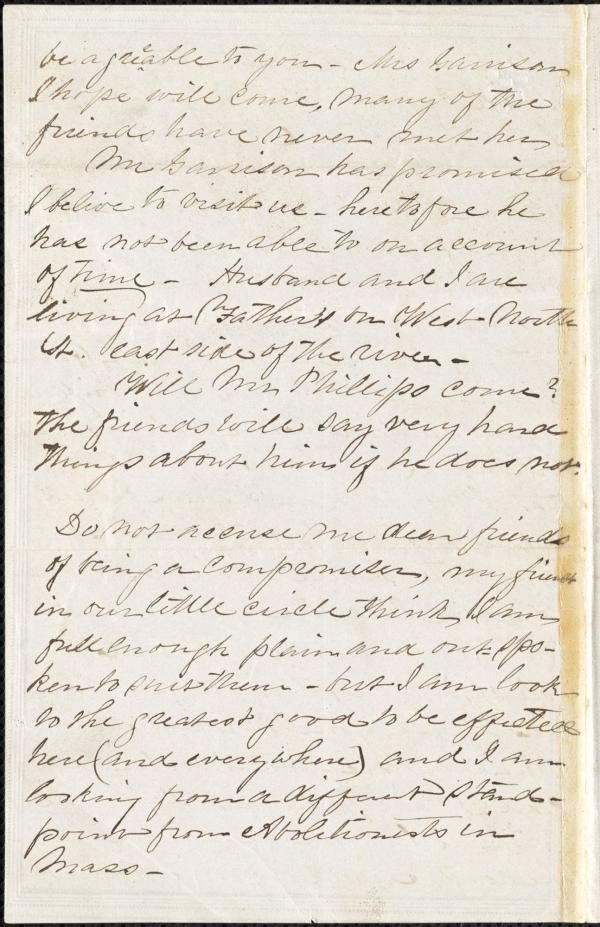 be agreable to you - Mrs Garrison
I hope will come, many of the
friends have never met her,
Mr Garrison has promised
I belive to visit us - heretofore he
has not been able to on account
of time - Husband and I are
living at Father's on West North
St. east side of the river -
Will Mr Phillips come?
The friends will say very hard
things about him if he does not.
Do not accuse me dear friends
of being a compromiser, my friends
in our little circle think I am
full enough plain and out-spo-
ken to suit them - but I am look
to the greatest good to be effected
here (and everywhere) and I am
looking from a different stand-
point from Abolitionists in
Mass -